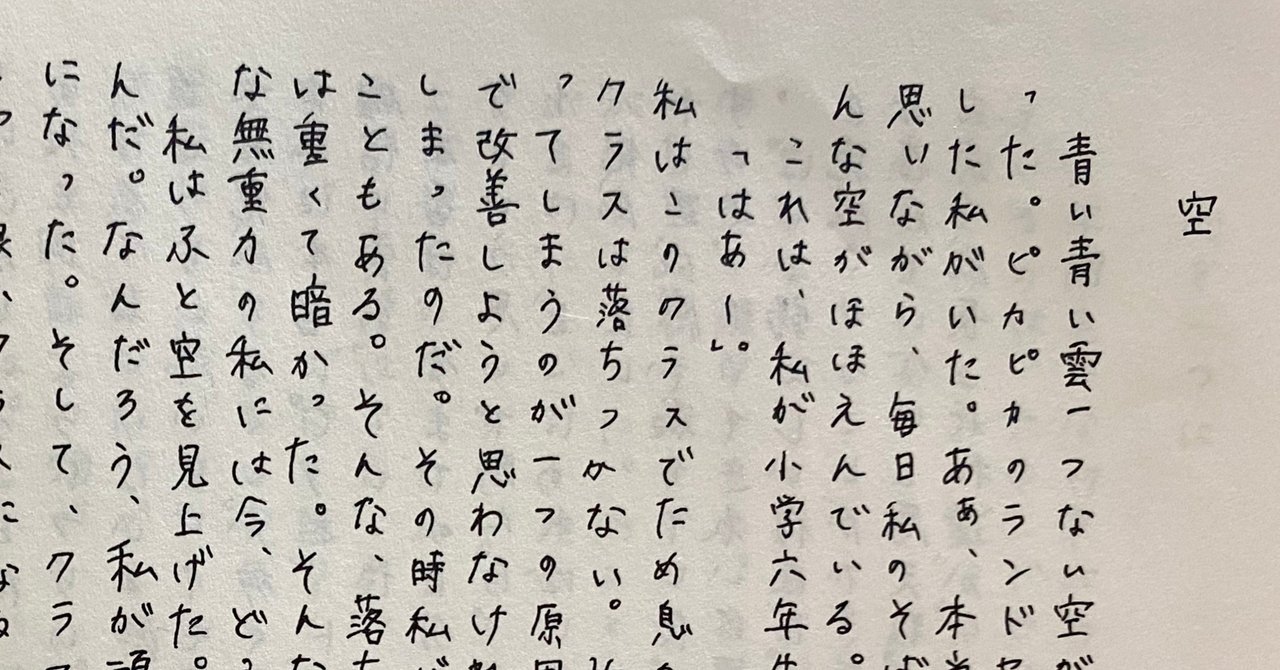 空
青い青い雲一つない空が
った。ピカピカのランドセ
した私がいた。ああ、本当
思いながら、毎日私のそば
んな空がほほえんでいる。
これは、私が小学六年生
「はあー」。
私はこのクラスでため息
クラスは落ちつかない。
ってしまうのが一つの原因
で改善しようと思わなけ
しまったのだ。その時私が
こともある。そんな、落ち
は重くて暗かった。そんな
な無重力の私には今、ど
私はふと空を見上げた。
んだ。なんだろう、私が
になった。そして、クラス